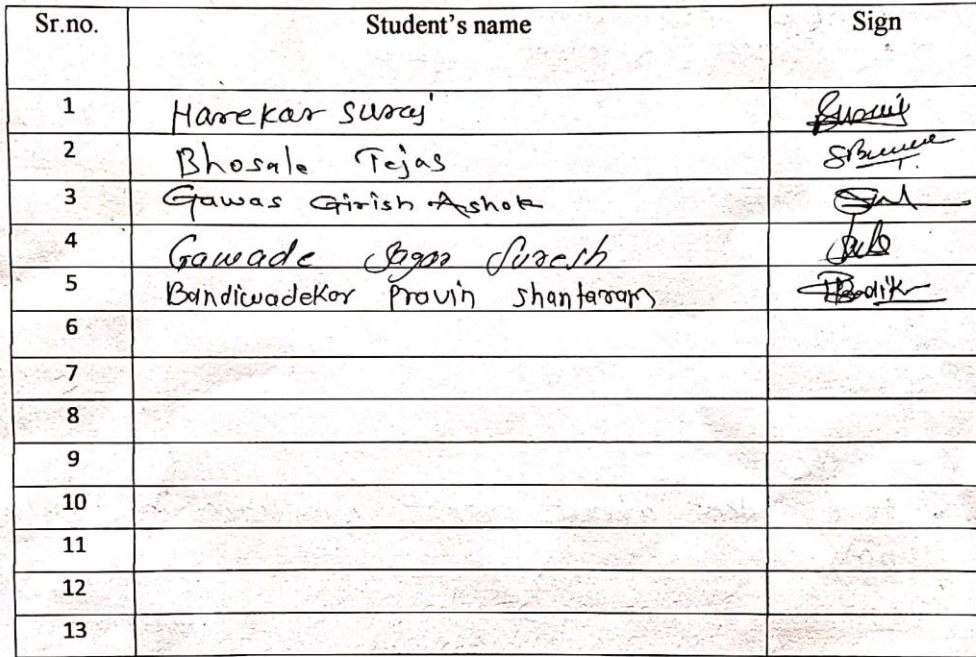 Sr.no. Student's name Sign
1 Harekar Suraj
2 Bhosale Tejas
3 Gawas Girish Ashok
4 Gawade Sagar Suresh
5 Bandiwadekar Pravin Shantaram
6
7
8
9
10
11
12
13